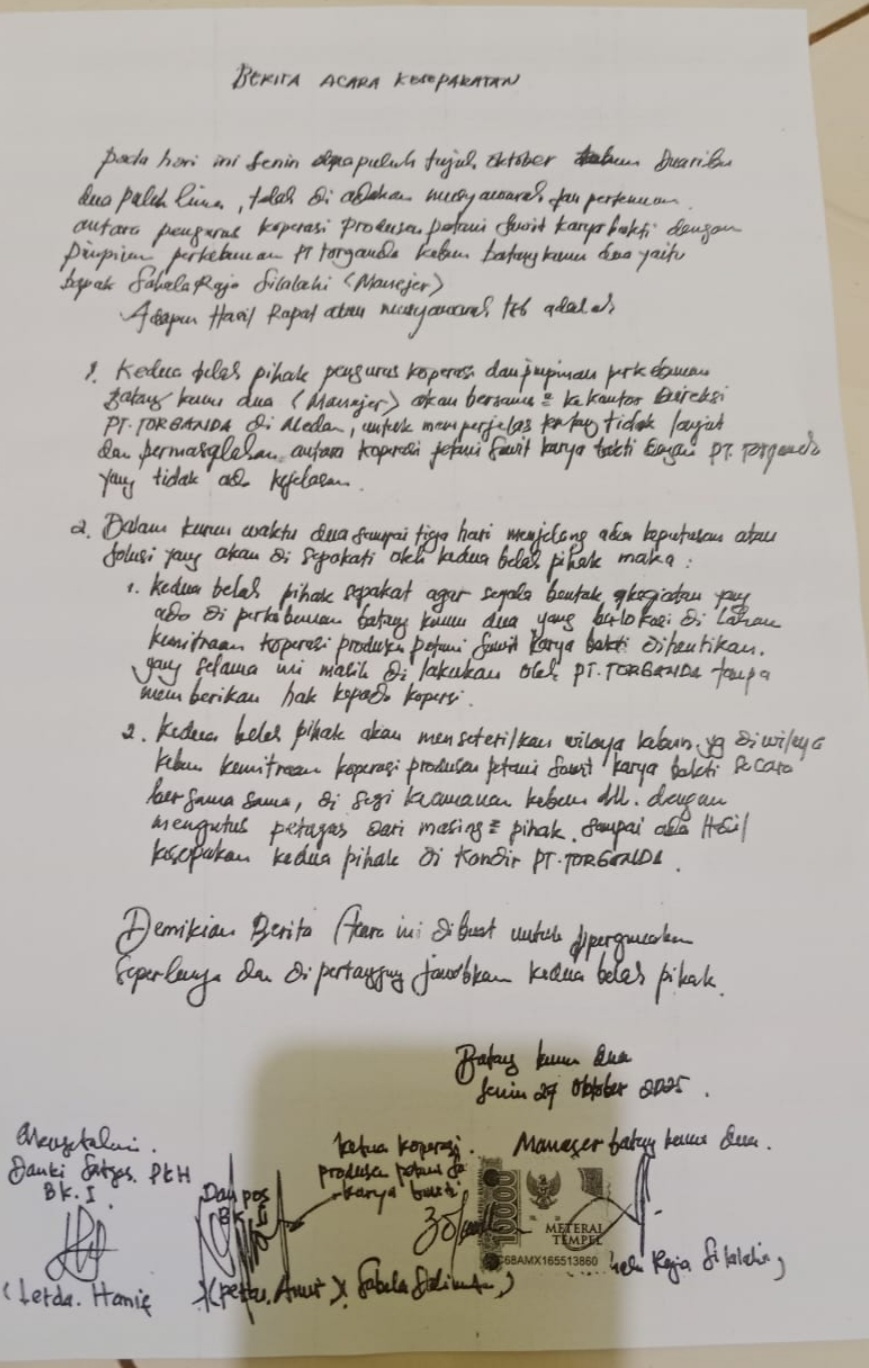 BERITA ACARA KESEPAKATAN
pada hari ini Senin duapuluh tujuh Oktober tahun Duaribu
dua puluh lima, telah di adakan musyawarah dan pertemuan
antara pengurus koperasi produsen petani sawit karya bakti dengan
pimpinan perkebunan PT torganda kebun batang kumu dua yaitu
bapak Sahala Raja Silalahi (Manejer)
Adapun Hasil Rapat atau musyawarah tsb adalah
1. Kedua belas pihak pengurus koperasi dan pimpinan perkebunan
Batang kumu dua (Manajer) akan bersama = ke kantor Direksi
PT. TORGANDA di Medan, untuk memperjelas tentang tidak lanjut
dan permasalahan antara koperasi petani sawit karya bakti dengan PT. Torganda
yang tidak ada kejelasan.
2. Dalam kurun waktu dua sampai tiga hari menjelang ada keputusan atau
solusi yang akan di sepakati oleh kedua belas pihak maka :
1. kedua belas pihak sepakat agar segala bentuk kegiatan yang
ada di perkebunan batang kumu dua yang berlokasi di Lahan
kemitraan koperasi produsen petani sawit karya bakti dihentikan.
yang selama ini masih di lakukan oleh PT. TORGANDA tanpa
memberikan hak kepada kopersi.
2. Kedua belas pihak akan mensterilkan wilaya kebun yg diwilaya
kebun kemitraan koperasi produsen petani sawit karya bakti secara
bersama sama, di segi keamanan kebun dll. dengan
mengutus petugas dari masing = pihak. Sampai ada Hasil
kesepakan kedua pihak di kondir PT. TORGANDA.
Demikian Berita Acara ini dibuat untuk dipergunakan
seperlunya dan di pertanggung jawabkan kedua belas pihak.
Batang kumu dua
Senin 27 Oktober 2025.
Mengetahui.
Danki Satgas. PKH
BK. I
(Letda. Hanif)
Danpos
BK
Ketua koperasi.
produsen petani
karya bakti
Manager batang kumu dua.
10000
METERAI
TEMPEL
68AMX165513860
Raja Silalahi)